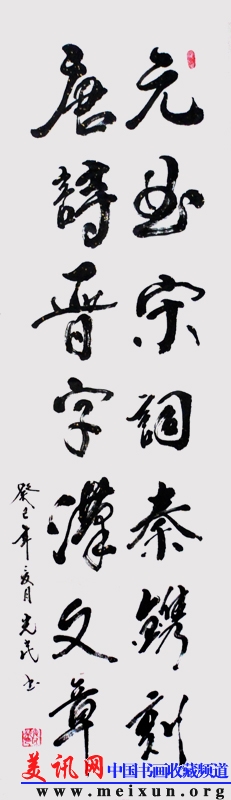 元曲宋詞秦鐫刻
唐詩晋字漢文章
癸巳年夏月光書
美讯网 中国书画收藏频道
www.meixun.net